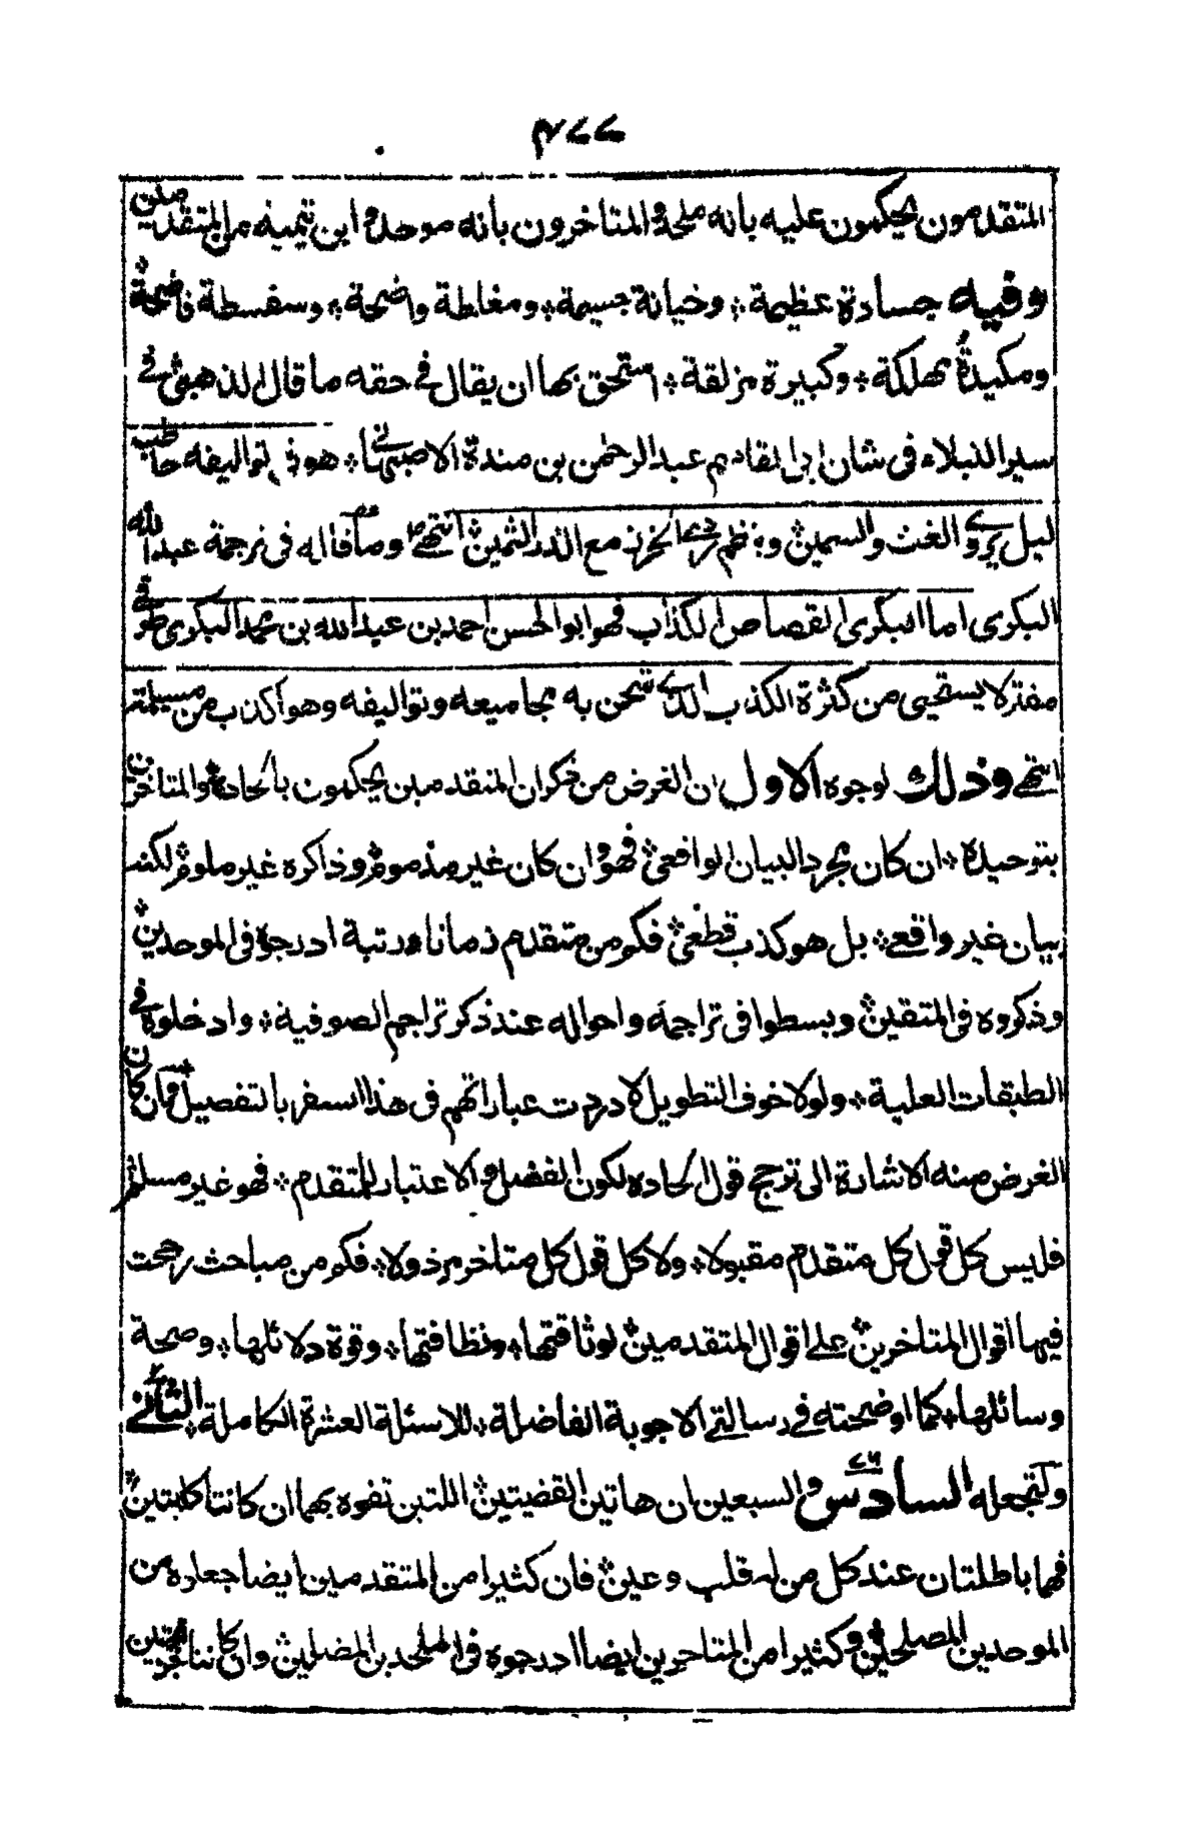 ٤٧٧
المتقدمون يحكمون عليه بانه ملحد والمتاخرون بانه موحد وابن تيمية من المتقدمين
وفيه جسارة عظيمة؞ وخيانة جسيمة؞ ومغالطة واضحة؞ وسفسطة فاضحة؞
ومكيدة مهلكة؞ وكبيرة مزلقة؞ استحق بها ان يقال فى حقه ما قال الذهبى؞ فى
سير النبلاء فى شان ابى القاسم عبد الرحمن بن مندة الاصبهانى؞ هو فى تواليفه حاطب
ليل يروى الغث والسمين؞ وينظم ردى الخرز مع الدر الثمين؞ انتهى وما قاله فى ترجمة عبد الله
البكرى اما البكرى القصاص الكذاب فهو ابو الحسن احمد بن عبد الله بن محمد البكرى طرقى
مفتر لا يستحيى من كثرة الكذب الذى شحن به مجاميعه وتواليفه وهو اكذب من مسيلمة
انتهى وذلك لوجوه الاول ان الغرض من ذكر ان المتقدمين يحكمون بالحاده والمتاخرين
بتوحيده؞ ان كان مجرد البيان الواقعى؞ فهو وان كان غير مذموم؞ وذاكره غير ملوم؞ لكنه
بيان غير واقعى؞ بل هو كذب قطعى؞ فكم من متقدم زمانا ورتبة ادرجوه فى الموحدين؞
وذكروه فى المتقين؞ وبسطوا فى تراجمه واحواله عند ذكر تراجم الصوفية؞ وادخلوه فى
الطبقات العلية؞ ولولا خوف التطويل لاوردت عباراتهم فى هذا السفر بالتفصيل؞ وان كان
الغرض منه الاشارة الى ترجيح قول الحاده لكون الفضل والاعتبار للمتقدم؞ فهو غير مسلم؞
فليس كل قول كل متقدم مقبولا؞ ولا كل قول كل متاخر مرذولا؞ فكم من مباحث رجحت
فيها اقوال المتاخرين؞ على اقوال المتقدمين؞ لوثاقتها؞ ونظافتها؞ وقوة دلائلها؞ وصحة
وسائلها؞ كما اوضحته فى رسالتى الاجوبة الفاضلة؞ للاسئلة العشرة الكاملة؞ الثانى
ولنجعله السادس ٧٦ والسبعين ان هاتين القضيتين؞ اللتين تفوه بهما ان كانتا كليتين؞
فهما باطلتان عند كل من له قلب وعين؞ فان كثيرا من المتقدمين ايضا جعلوه من
الموحدين المصلحين؞ وكثيرا من المتاخرين ايضا ادرجوه فى الملحدين المضلين؞ وان كانتا جزئيتين